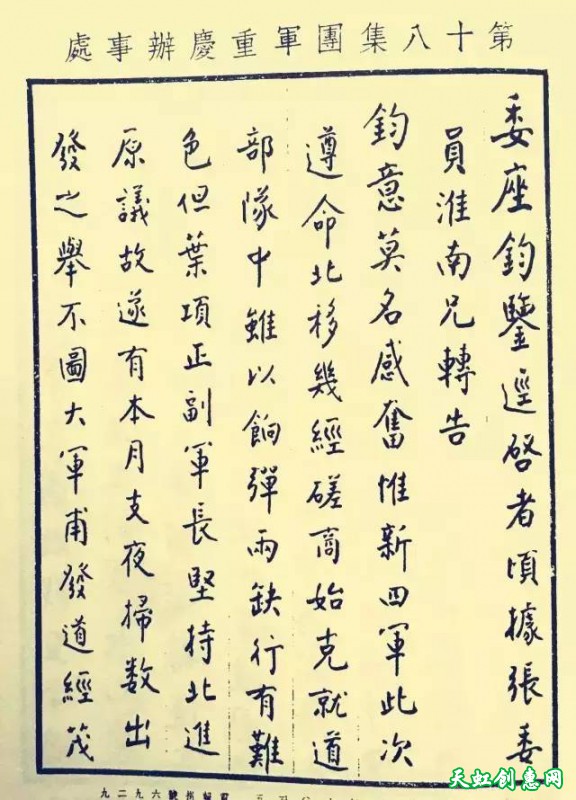 第十八集團軍重慶辦事處
委座鈞鑒逕啓者頃據張委
員淮南兄轉告
鈞意莫名感奮惟新四軍此次
遵命北移幾經磋商始克就道
部隊中雖以餉彈兩缺行有難
色但葉項正副軍長堅持北進
原議故遂有本月支夜掃数出
發之舉不圖大軍甫發道經茂
天虹创惠网